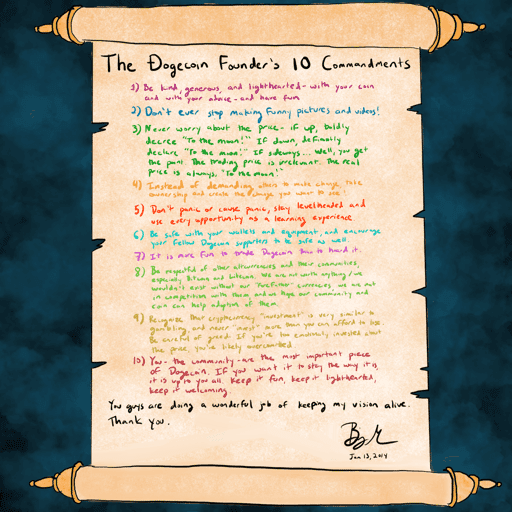 The Dogecoin Founder's 10 Commandments
1) Be kind, generous, and lighthearted - with your coin
and with your advice - and have fun
2) Don't ever stop making funny pictures and videos!
3) Never worry about the price - if up, boldly
decree "To the moon!" If down, defiantly
declare "To the moon!" If sideways... Well, you get
the point. The trading price is irrelevant. The real
price is always, "To the moon!"
4) Instead of demanding others to make change, take
ownership and create the change you want to see!
5) Don't panic or cause panic, stay levelheaded and
use every opportunity as a learning experience
6) Be safe with your wallets and equipment, and encourage
your fellow Dogecoin supporters to be safe as well
7) It is more fun to trade Dogecoin than to hoard it.
8) Be respectful of other altcurrencies and their communities,
especially Bitcoin and litecoin. We are not worth anything / we
wouldn't exist without our "forefather" currencies, we are not
in competition with them and we hope our community and
coin can help adoption of them.
9) Recognize that cryptocurrency "investment" is very similar to
gambling, and never "invest" more than you can afford to lose.
Be careful of greed. If you're too emotionally invested about
the price, you're likely overcommitted
10) You - the community - are the most important piece
of Dogecoin. If you want it to stay the way it is,
it is up to you all. Keep it fun, keep it lighthearted,
keep it welcoming.
You guys are doing a wonderful job of keeping my vision alive.
Thank you.
Jan 13, 2014